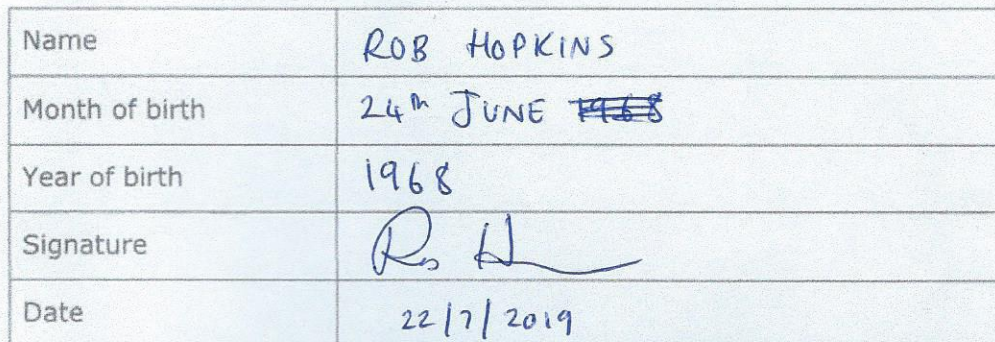 Name ROB HOPKINS
Month of birth 24th JUNE 1968
Year of birth 1968
Signature
Date 22/7/2019